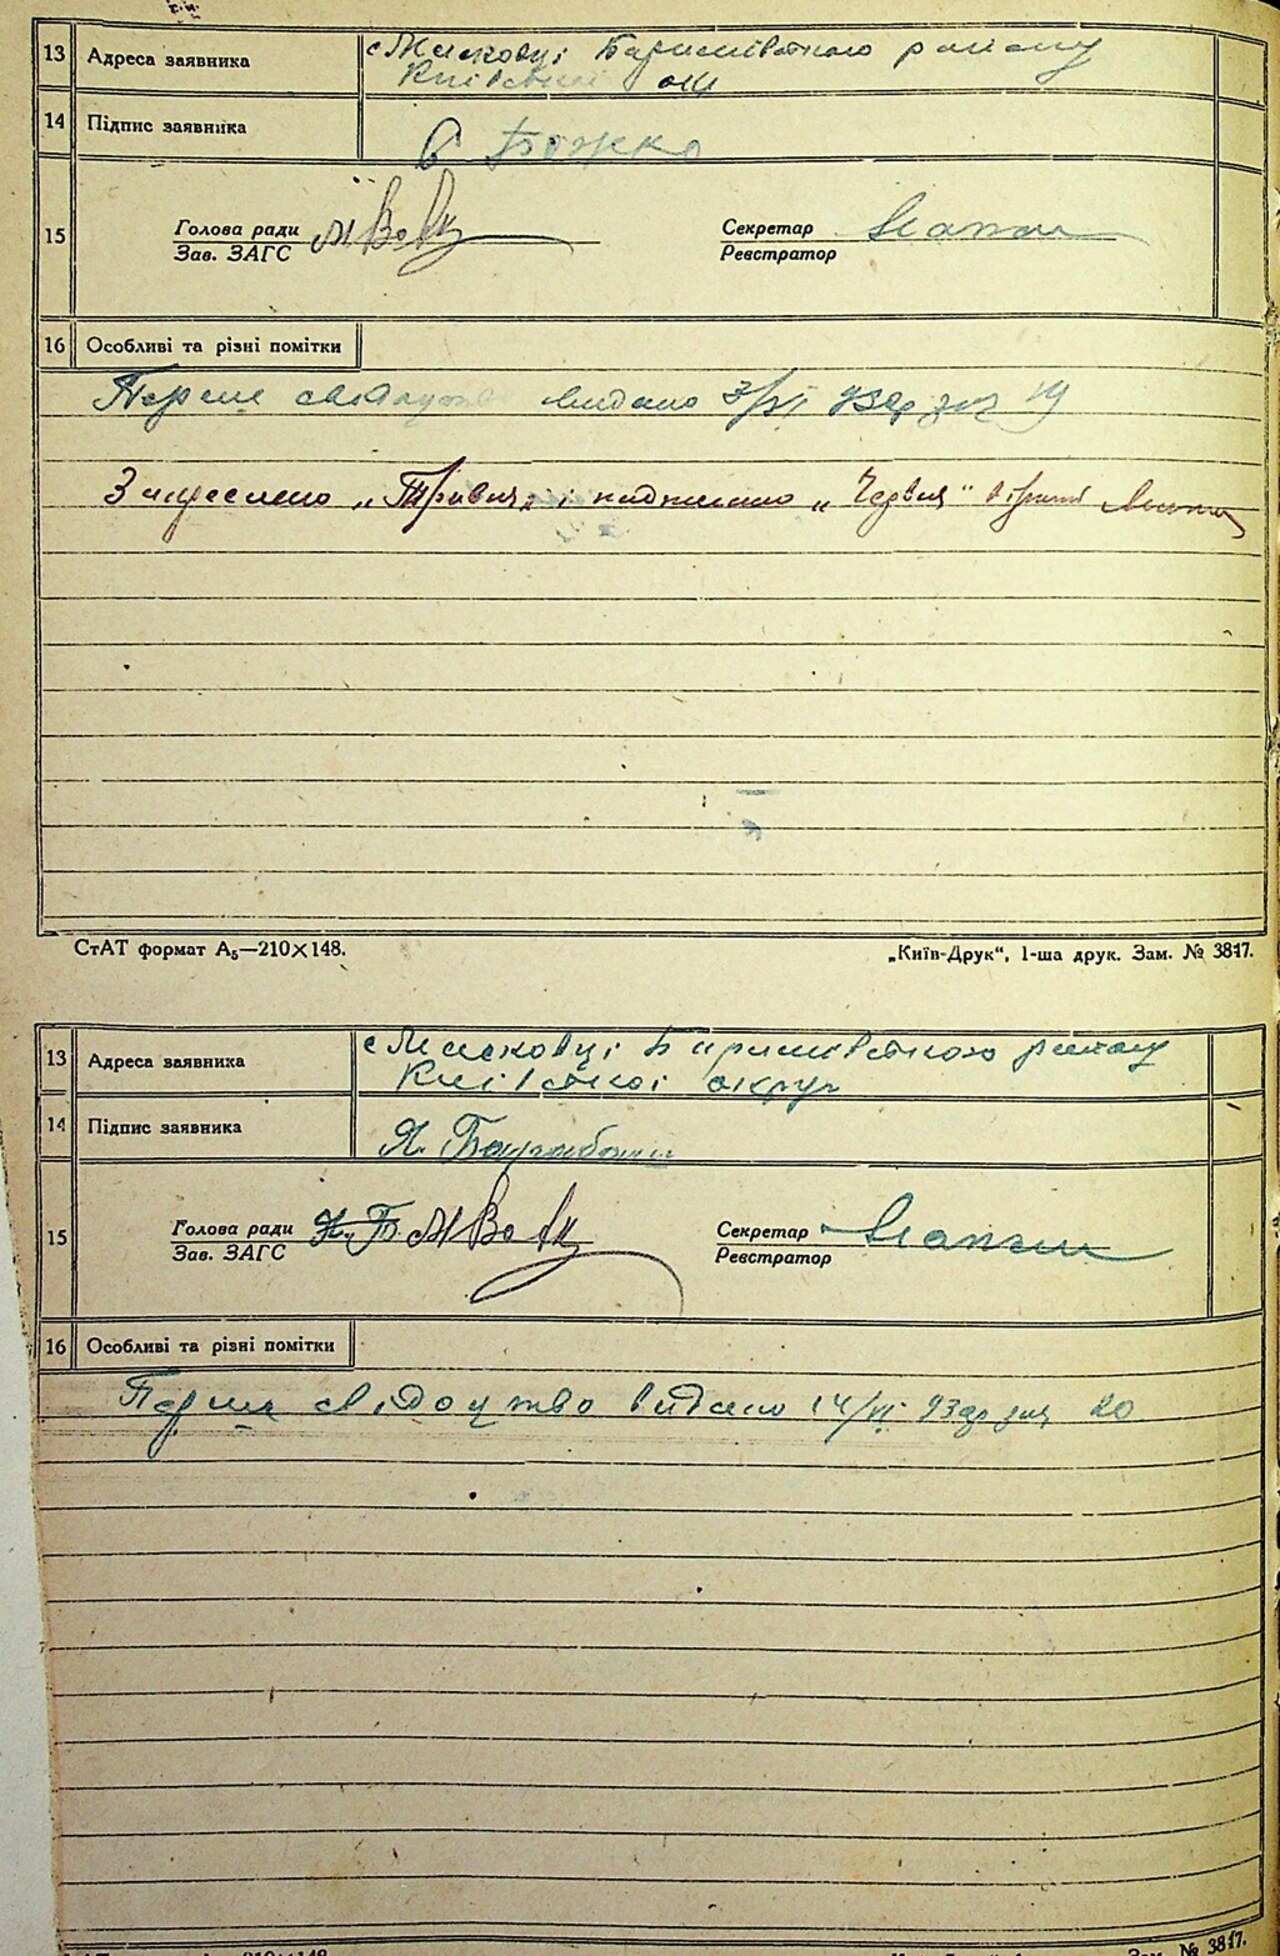 13 Адреса заявника с Масковці Баришівського району
Київської окр
14 Підпис заявника С Божко
15 Голова ради М Вовк Секретар
Зав. ЗАГС Реєстратор
16 Особливі та різні помітки
Перше свідоцтво видано 3/VI 930р за № 19
Закреслено „Травня„ і написано „Червня" вірити
СтАТ формат А₅—210×148. „Київ-Друк“, 1-ша друк. Зам. № 3817.
13 Адреса заявника с Масковці Баришівського району
Київської округи
14 Підпис заявника Я.
15 Голова ради Я. Б. М Вовк Секретар
Зав. ЗАГС Реєстратор
16 Особливі та різні помітки
Перше свідоцтво видано 14/VI 93др за № 20
Зам. № 3817.